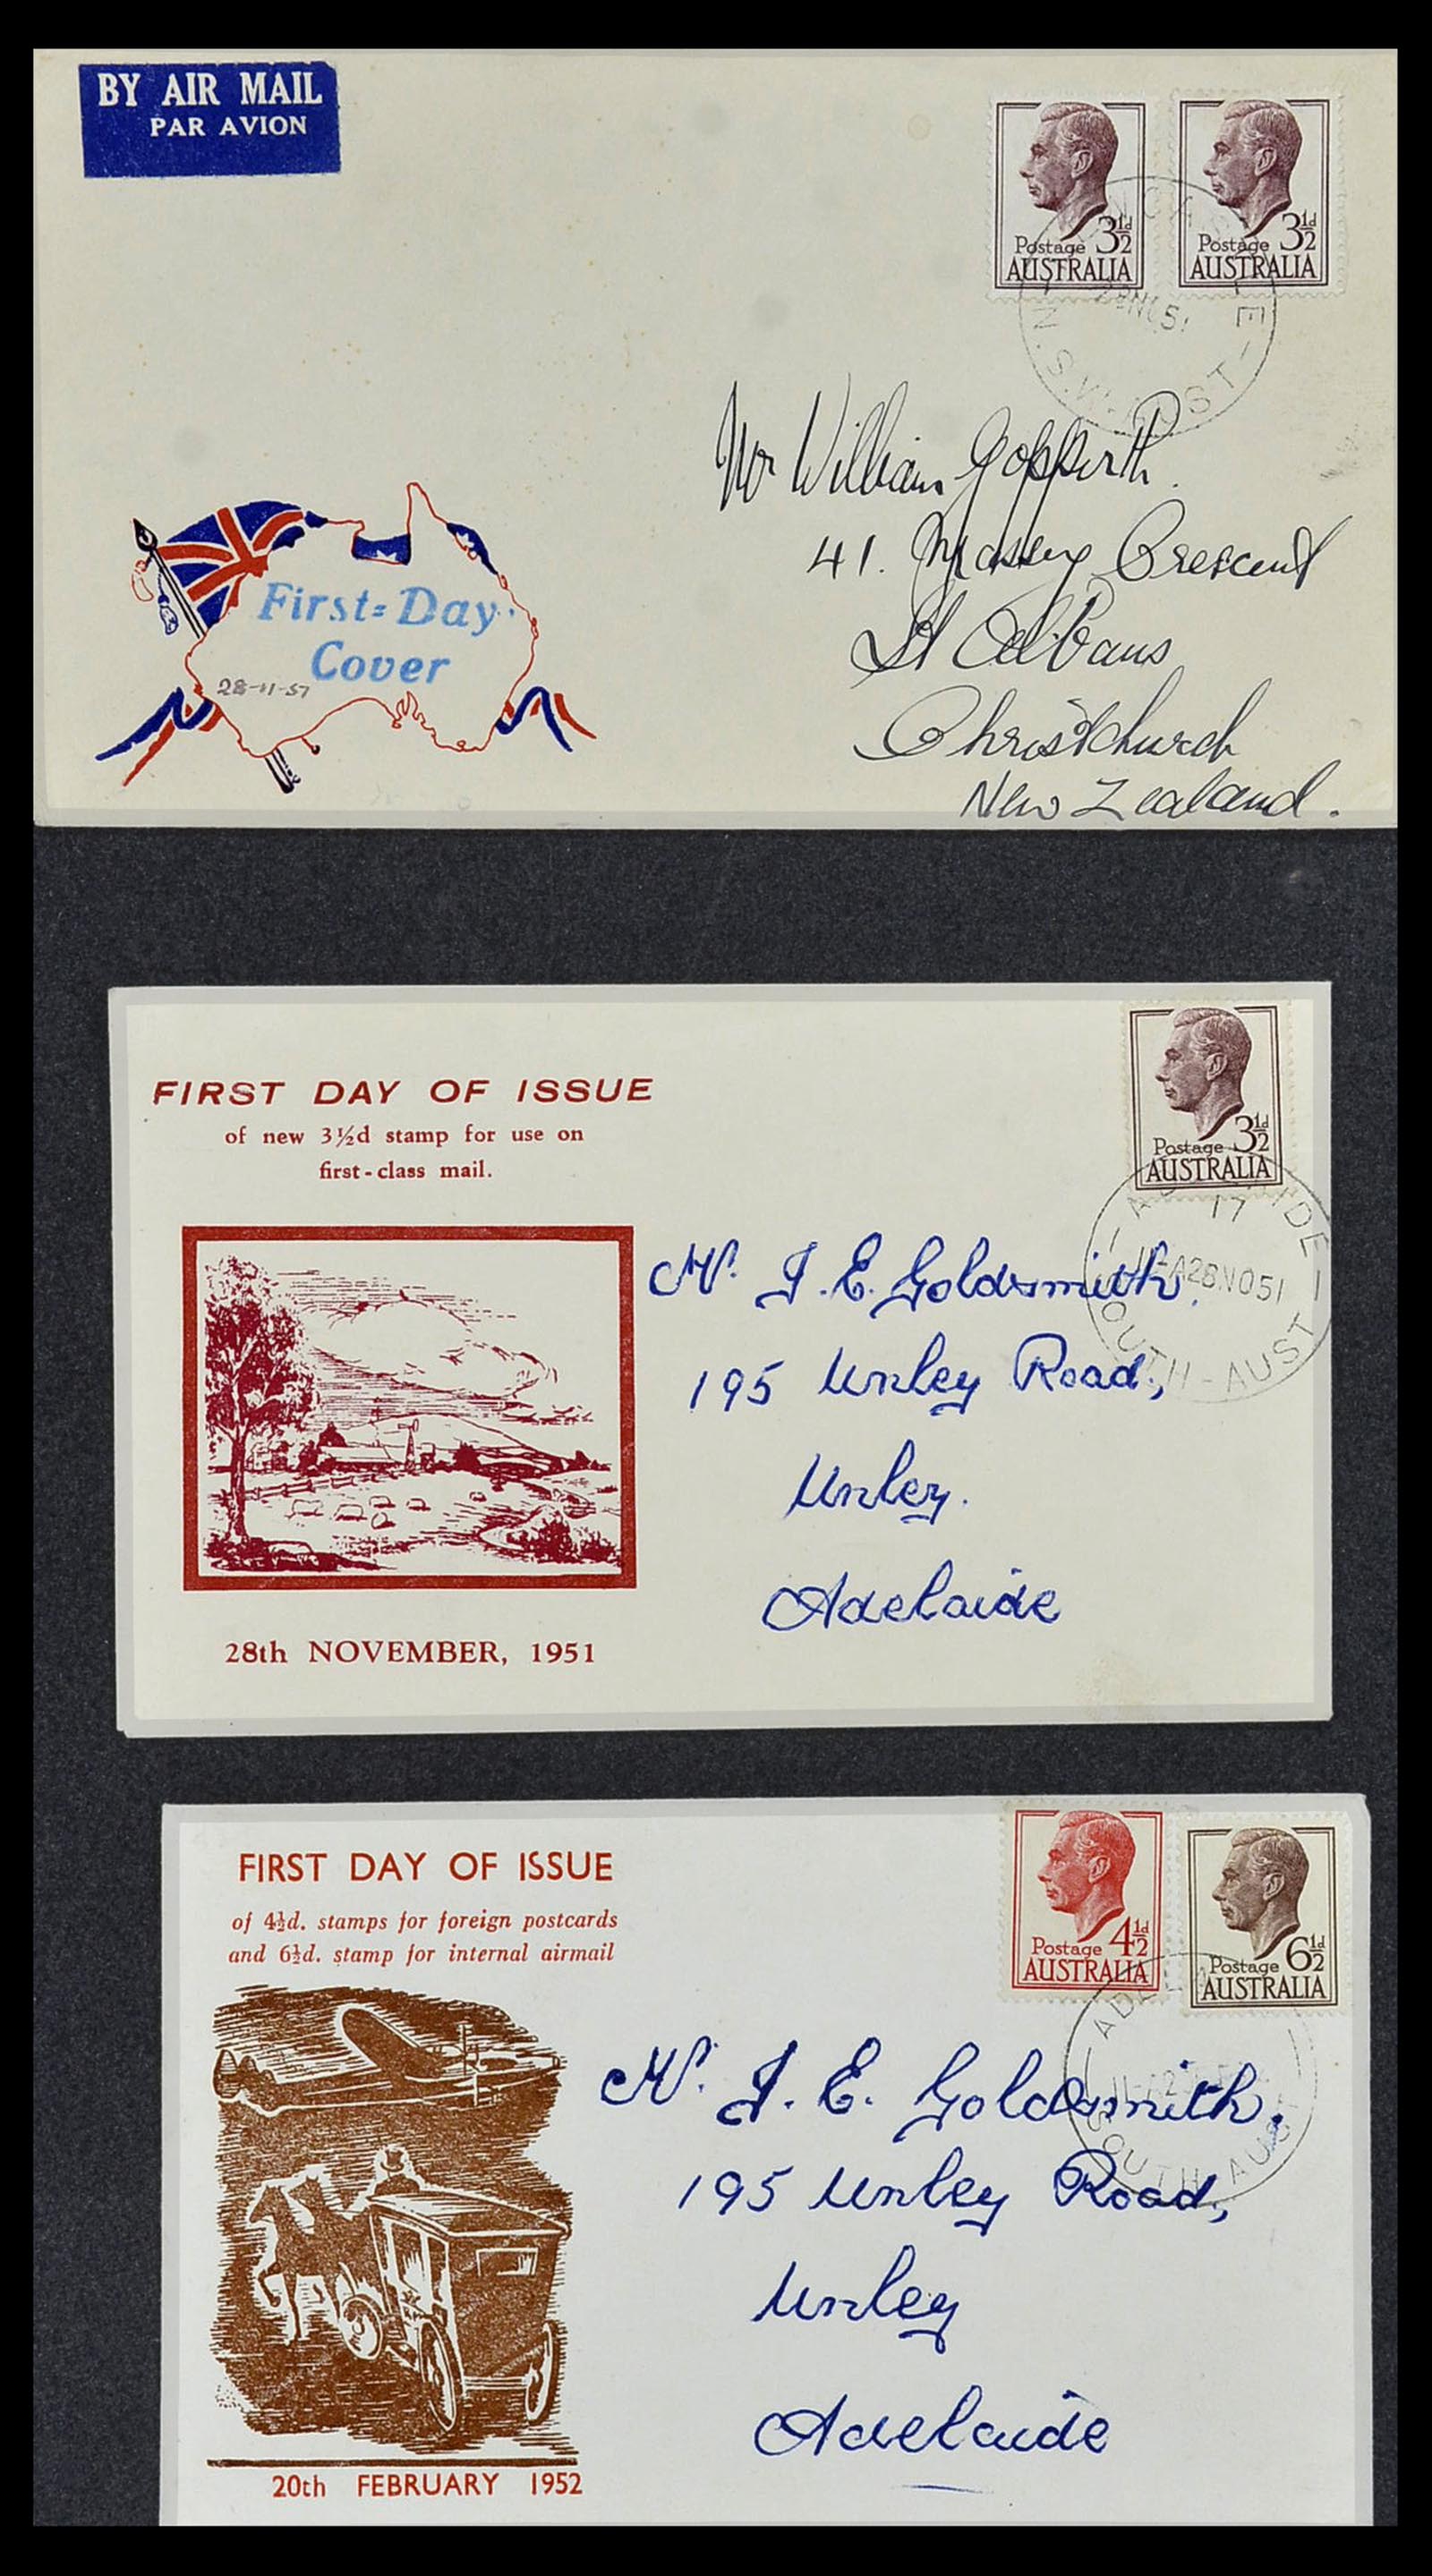 BY AIR MAIL
PAR AVION
Postage 3½d
AUSTRALIA
Postage 3½d
AUSTRALIA
N.S.W. AUST
Mr William
41. Massey Crescent
St Albans
Christchurch
New Zealand.
First=Day
Cover
28-11-51
FIRST DAY OF ISSUE
of new 3½d stamp for use on
first-class mail.
Postage 3½d
AUSTRALIA
ADELAIDE
17
28NO51
SOUTH-AUST
Mr. J. E. Goldsmith.
195 Unley Road,
Unley.
Adelaide
28th NOVEMBER, 1951
FIRST DAY OF ISSUE
of 4½d. stamps for foreign postcards
and 6½d. stamp for internal airmail
Postage 4½d
AUSTRALIA
Postage 6½d
AUSTRALIA
SOUTH AUST
Mr. J. E. Goldsmith,
195 Unley Road,
Unley
Adelaide
20th FEBRUARY 1952